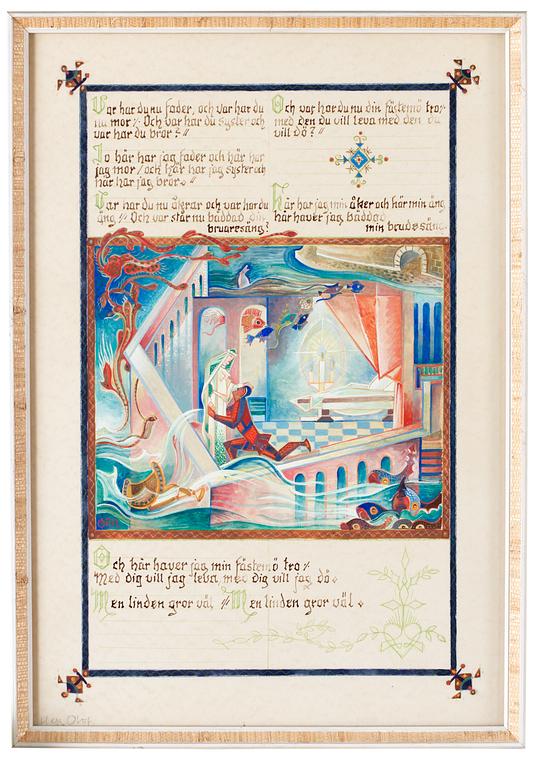 Var har du nu fader, och var har du
nu mor? Och var har du syster och
var har du bror? "
Jo här har jag fader och här har
jag mor / och här har jag syster och
här har jag bror. "
Var har du nu åkrar och var har du
äng? Och var står nu bäddad din
brudesäng?
Och var har du nu din fästemö tro,
med den du vill leva med den du
vill dö? "
Här har jag min åker och här min äng
här haver jag bäddad
min brudesäng.
Och här haver jag min fästemö tro,
Med dig vill jag leva, med dig vill jag dö.
Men linden gror väl " Men linden gror väl.